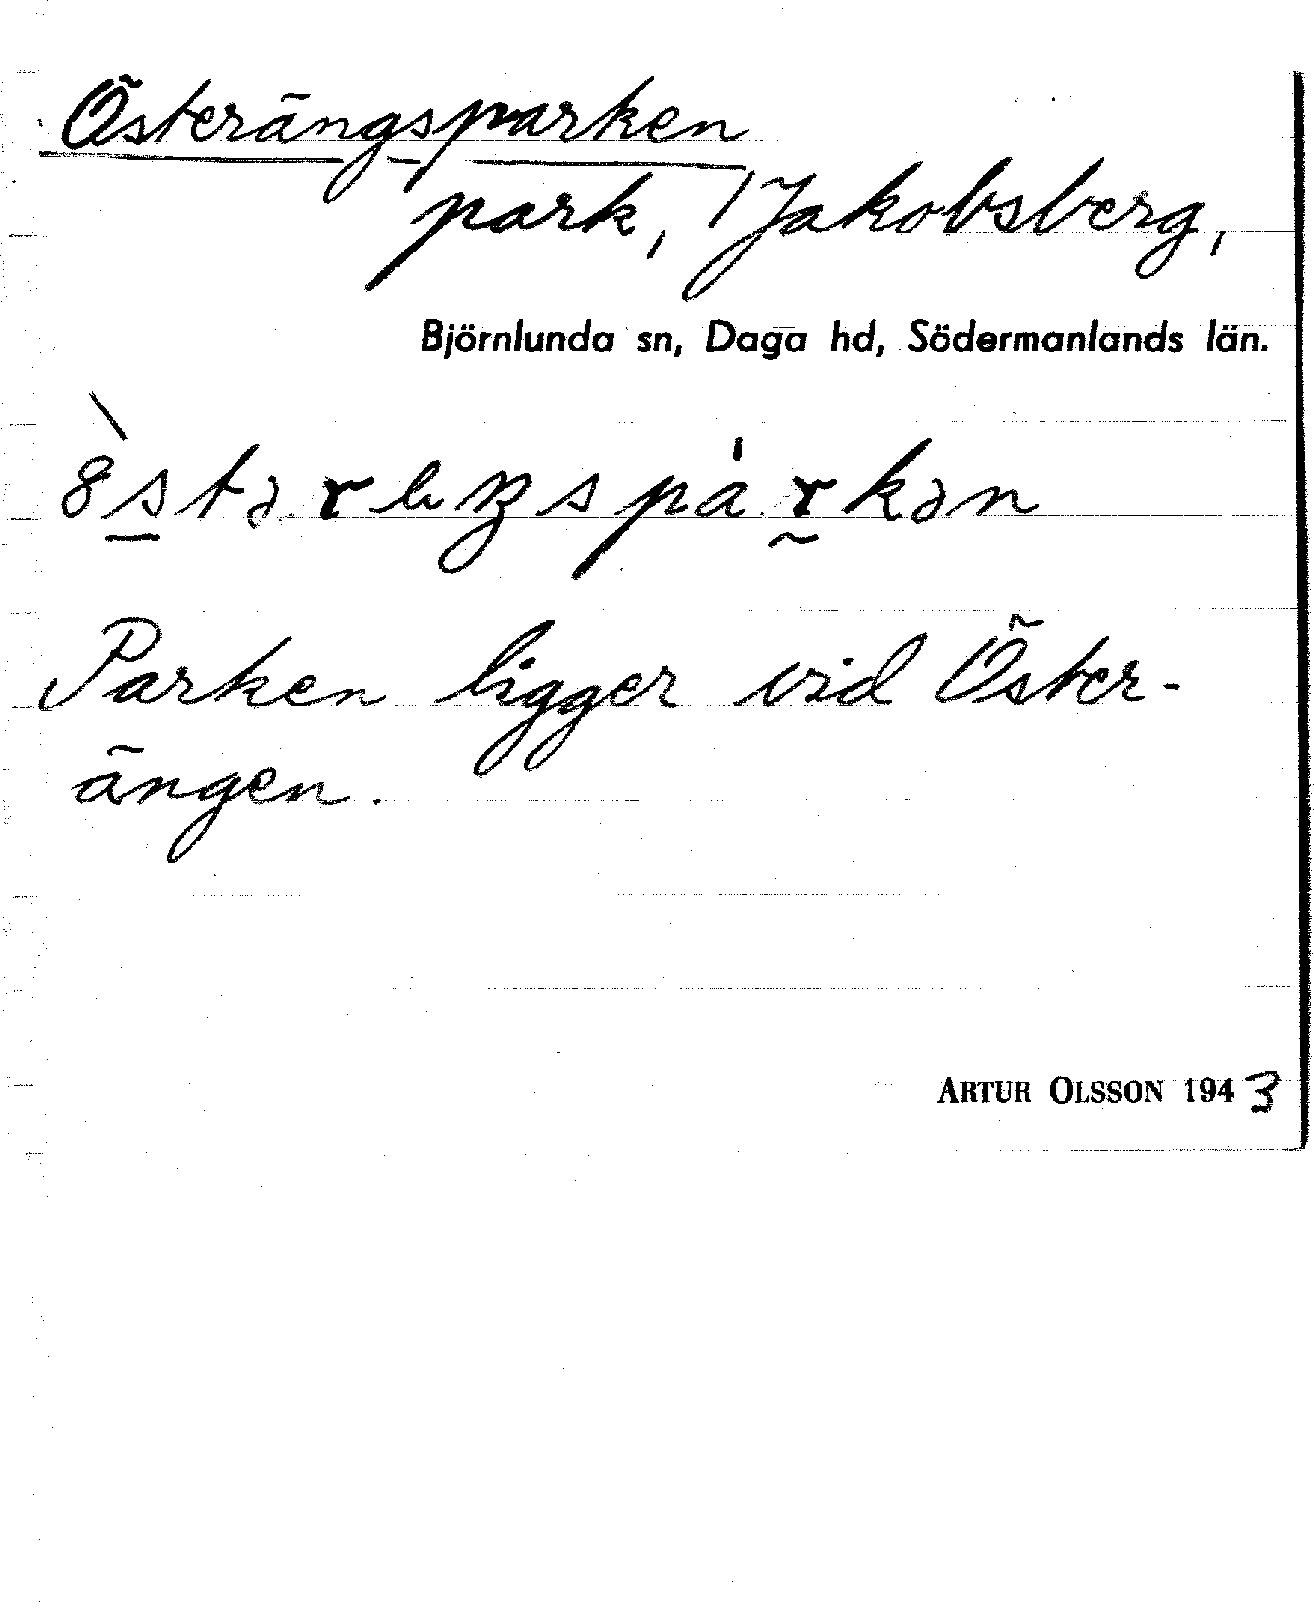 Österängsparken
park, 1 Jakobsberg,
Björnlunda sn, Daga hd, Södermanlands län.
Parken ligger vid Öster-
ängen.
ARTUR OLSSON 1943